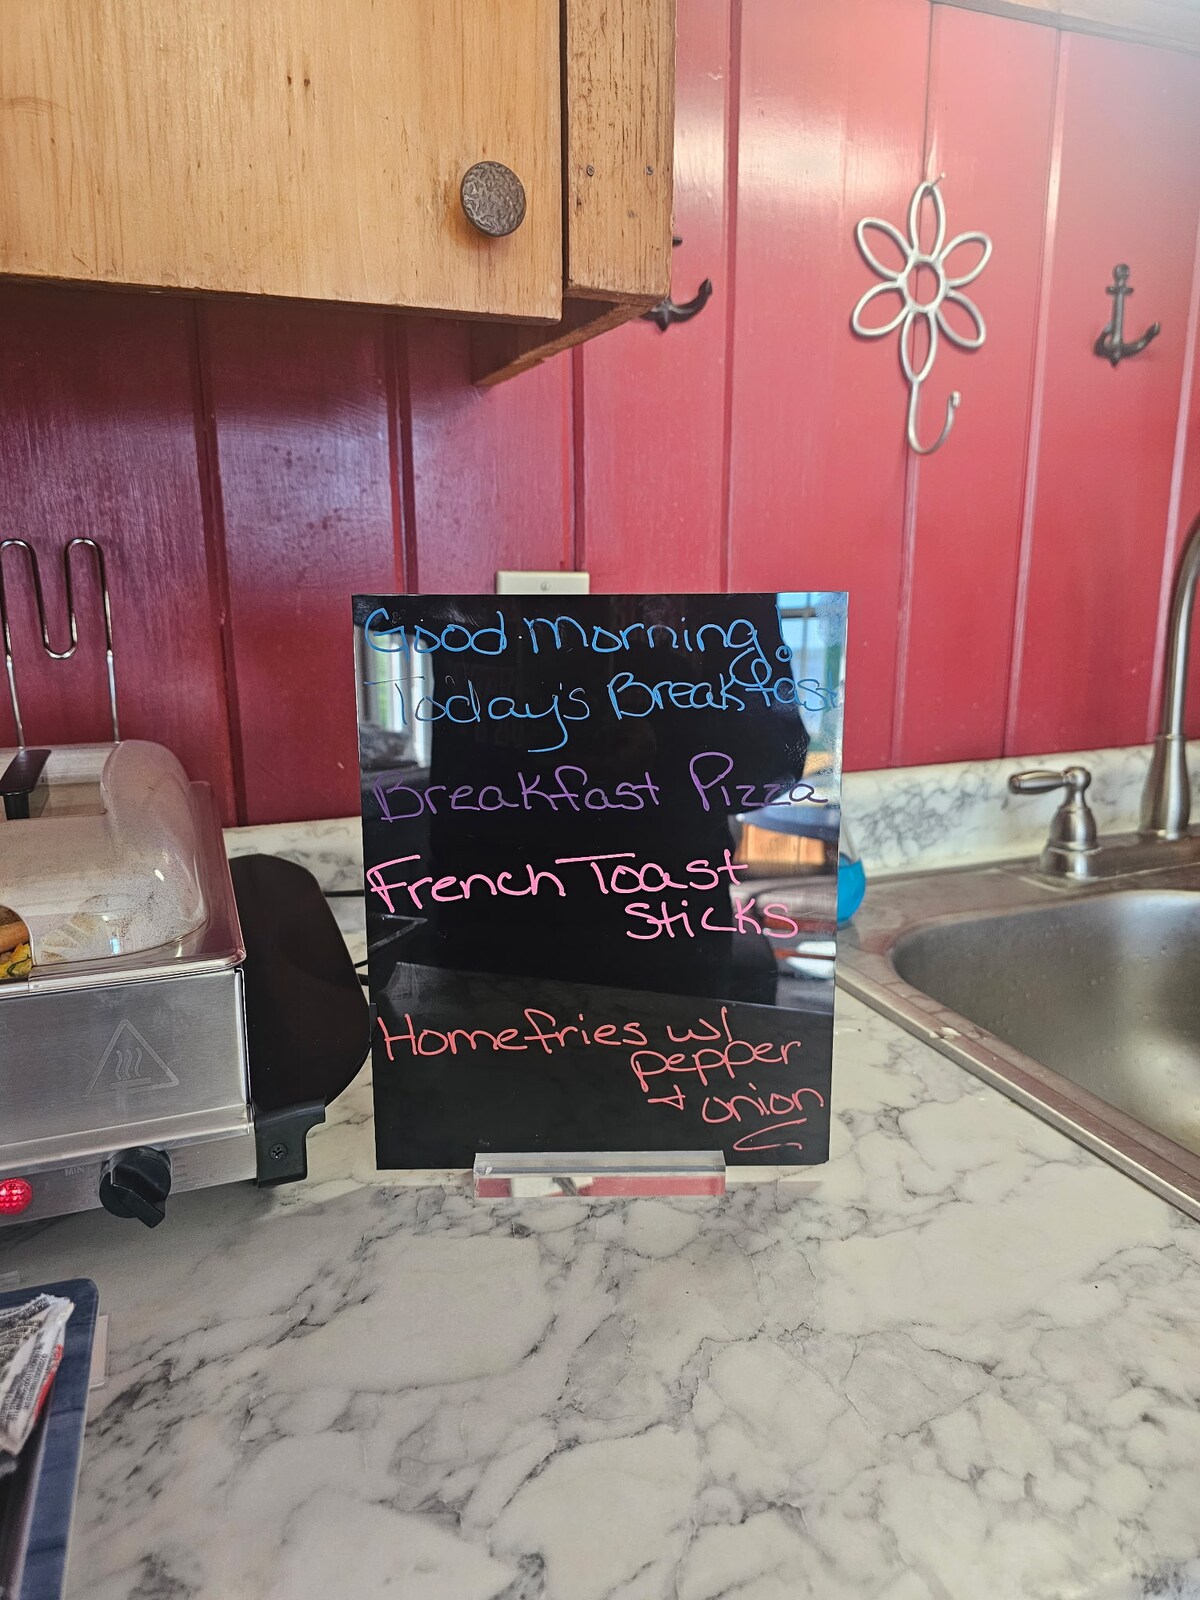 Good Morning!
Today's Breakfast
Breakfast Pizza
French Toast
Sticks
Homefries w/
pepper
+ onion
MIN